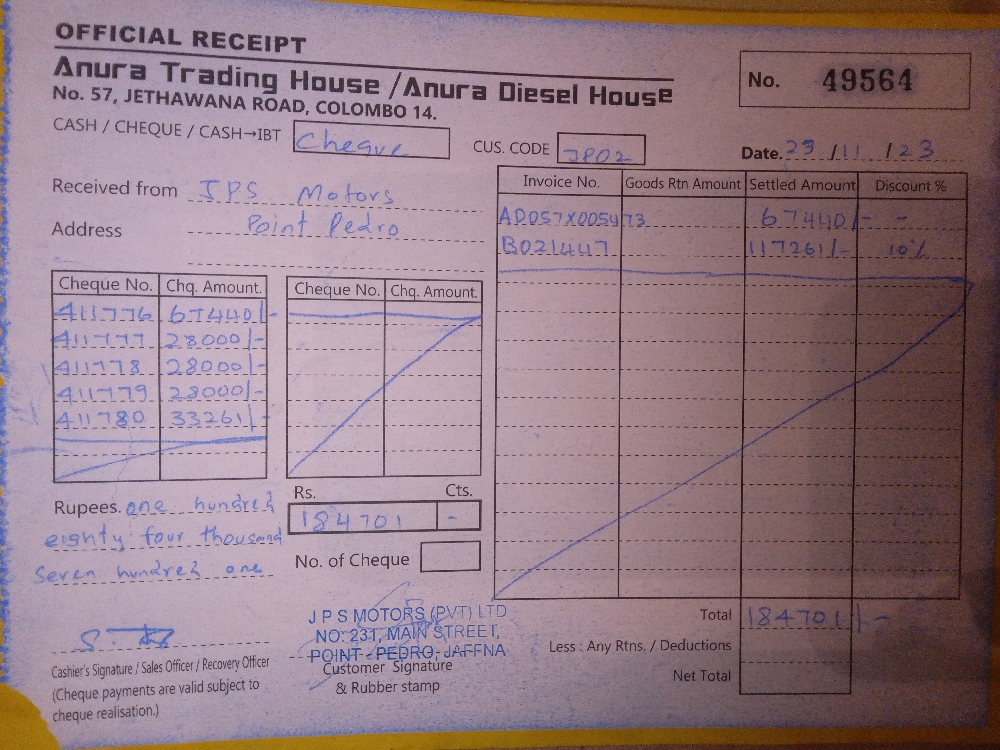 OFFICIAL RECEIPT
Anura Trading House / Anura Diesel House
No. 57, JETHAWANA ROAD, COLOMBO 14.
No. 49564
CASH / CHEQUE / CASH→IBT Cheque
CUS. CODE JP02
Date. 29/11/23
Received from JPS Motors
Address Point Pedro
Invoice No. Goods Rtn Amount Settled Amount Discount %
AD057X005473 67440/- -
B021447 117261/- 10%
Cheque No. Chq. Amount.
411776 67440/-
411777 28000/-
411778 28000/-
411779 28000/-
411780 33261/-
Cheque No. Chq. Amount.
Rupees. one hundred
eighty four thousand
seven hundred one
Rs. Cts.
184701 -
No. of Cheque
Total 184701/-
Less : Any Rtns. / Deductions
Net Total
Cashier's Signature / Sales Officer / Recovery Officer
(Cheque payments are valid subject to
cheque realisation.)
J P S MOTORS (PVT) LTD
NO: 231, MAIN STREET,
POINT - PEDRO, JAFFNA
Customer Signature
& Rubber stamp